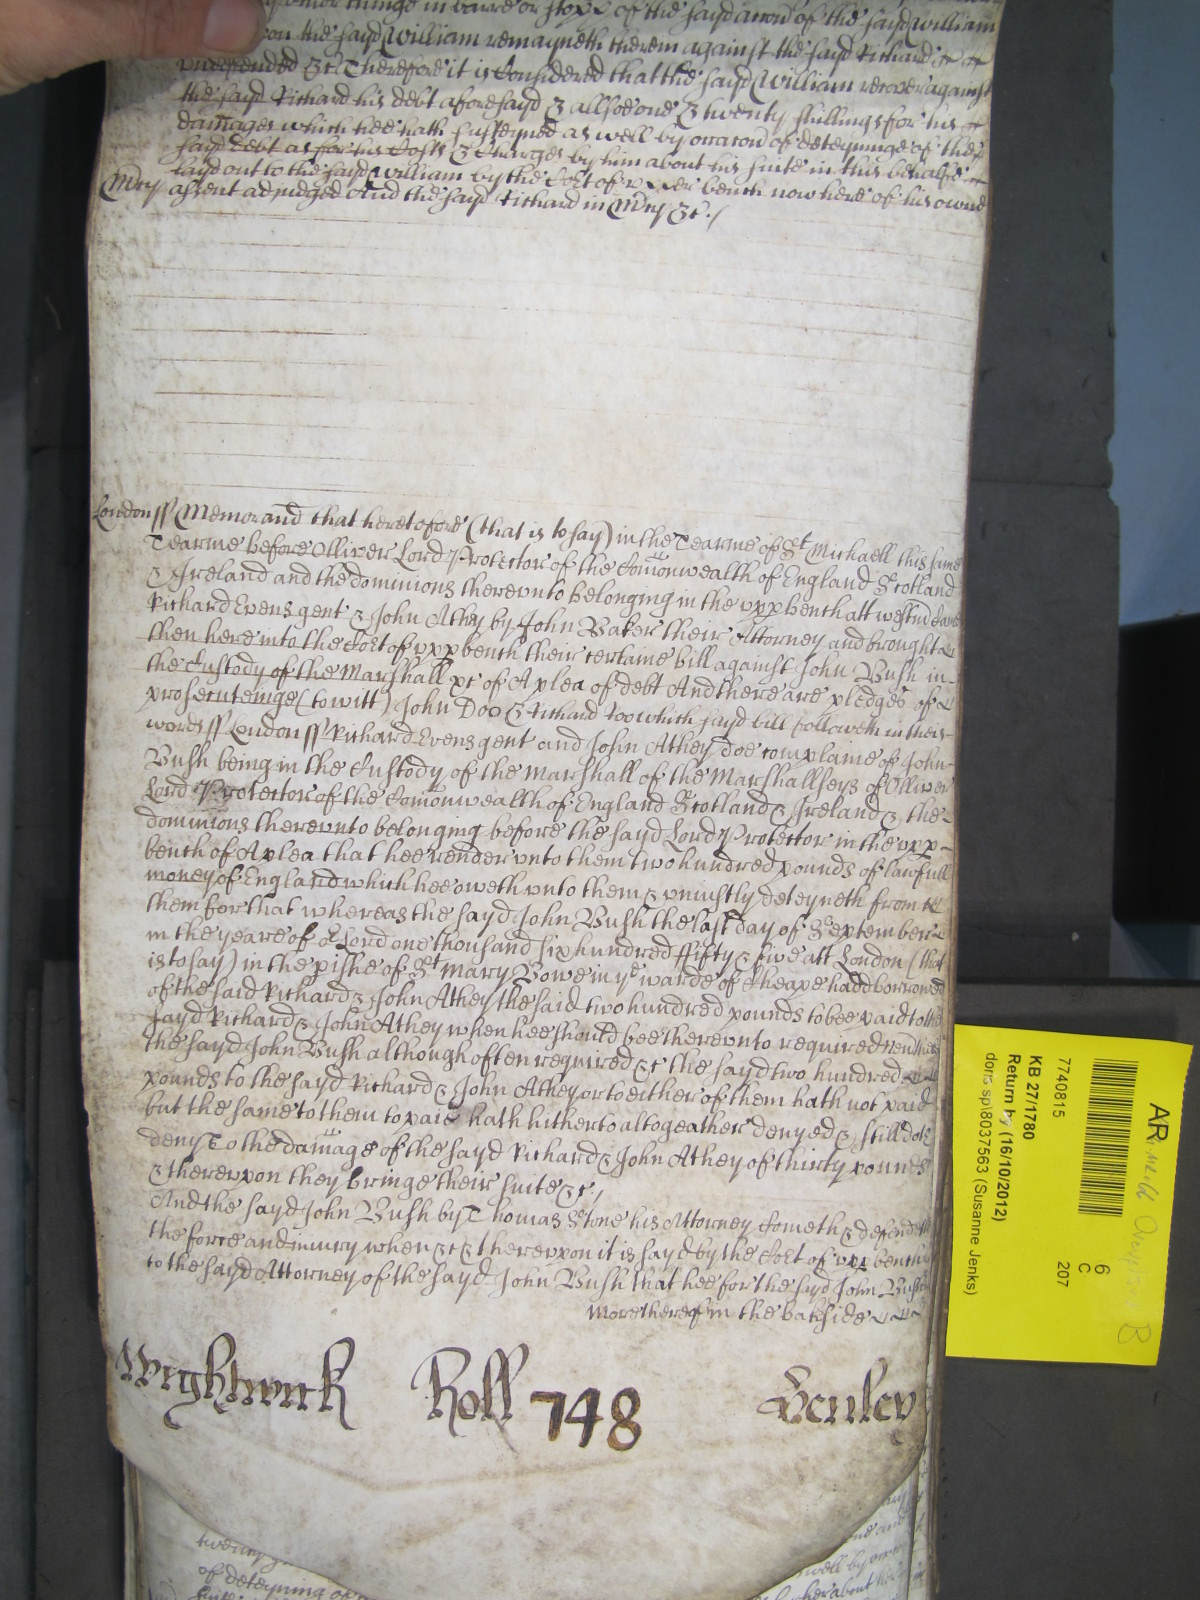 other things in barre or stopp of the sayd accon of the sayd William
upon the sayd William remayneth therein against the sayd Richard
undefended &c Therefore it is Considered that the sayd William recover against
the sayd Richard his debt aforesayd & allsoe one & twenty shillings for his
damages which hee hath susteyned as well by occacon of deteyninge of the
sayd debt as for his Costs & Charges by him about his suite in this behalfe
layd out to the sayd William by the Cort of upper bench now here of his owne
Mcy assent adjudged And the sayd Richard in Mcy &c ./
London ss Memorand that heretofore (that is to say) in the Tearme of St Michaell this same
Tearme before Olliver Lord Protector of the Comonwealth of England Scotland
& Ireland and the dominions thereunto belonging in the upp bench att Westm came
Richard Evens gent & John Athey by John Baker their Attorney and brought
then here into the Cort of upp bench their certaine bill against John Bush in
the Custody of the Marshall &c of A plea of debt And there are pledges of
prosecuteinge (to witt) John Doo & Richard Roo which sayd bill followeth in theis
words ss London ss Richard Evens gent and John Athey doe complaine of John
Bush being in the Custody of the Marshall of the Marshallseys of Olliver
Lord Protector of the Comonwealth of England Scotland & Ireland & the
dominions thereunto belonging before the sayd Lord Protector in the upp
bench of A plea that hee render unto them two hundred pounds of lawfull
money of England which hee oweth unto them & uniustly deteyneth from
them for that whereas the sayd John Bush the last day of September
in the yeare of or Lord one thousand six hundred fifty & five att London (that
is to say) in the pishe of St Mary Bowe in ye warde of Cheape hadd borrowed
of the said Richard & John Athey the said two hundred pounds to bee paid to the
sayd Richard & John Athey when hee should bee thereunto required neverthles
the sayd John Bush although often required &c the sayd two hundred
pounds to the sayd Richard & John Athey or to either of them hath not paid
but the same to them to paie hath hitherto altogeather denyed & still doth
deny To the damage of the sayd Richard & John Athey of thirty pounds
& thereupon they bringe their suite &c /
And the sayd John Bush by Thomas Stone his Attorney Cometh & defendeth
the force and iniury when &c & thereupon it is sayd by the Cort of upp bench
to the sayd Attorney of the sayd John Bush that hee for the sayd John Bush
more thereof in the backside
Wightwick Roll 748
twenty
of deteyning
7740815
KB 27/1780
Return by (16/10/2012)
doris sp\8037563 (Susanne Jenks)
AR
6
C
207
B